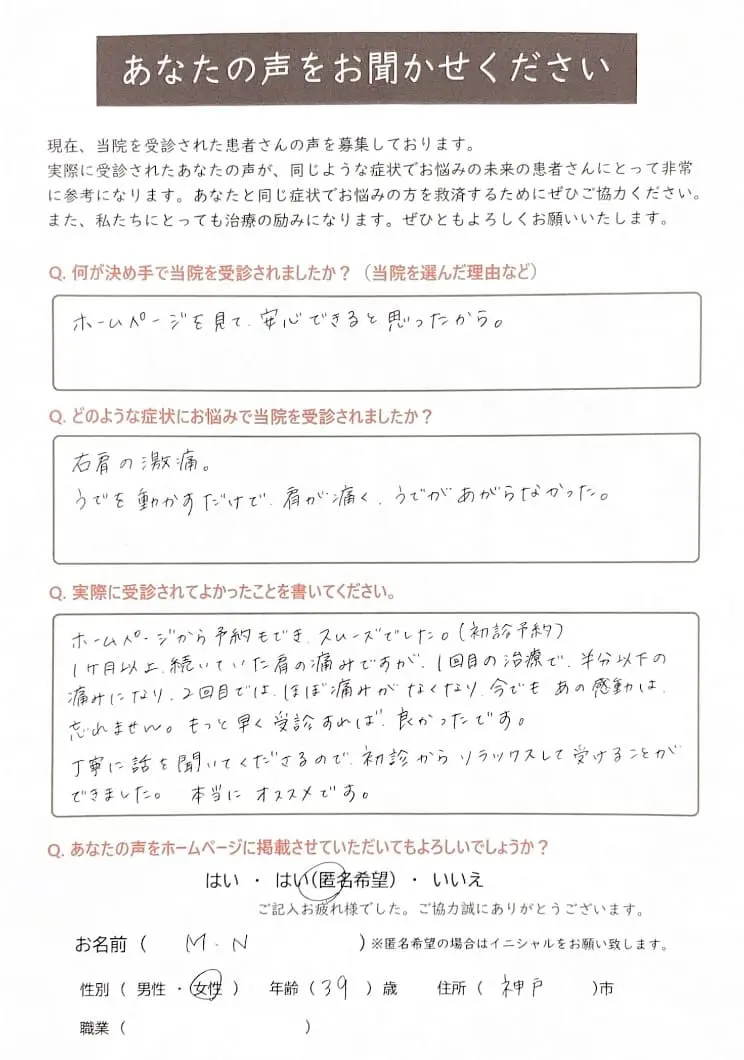 あなたの声をお聞かせください
現在、当院を受診された患者さんの声を募集しております。
実際に受診されたあなたの声が、同じような症状でお悩みの未来の患者さんにとって非常
に参考になります。あなたと同じ症状でお悩みの方を救済するためにぜひご協力ください。
また、私たちにとっても治療の励みになります。ぜひともよろしくお願いいたします。
Q. 何が決め手で当院を受診されましたか？（当院を選んだ理由など）
ホームページを見て、安心できると思ったから。
Q. どのような症状にお悩みで当院を受診されましたか？
右肩の激痛。
うでを動かすだけで、肩が痛く、うでがあがらなかった。
Q. 実際に受診されてよかったことを書いてください。
ホームページから予約もでき、スムーズでした。(初診予約)
1ヶ月以上、続いていた肩の痛みですが、1回目の治療で、半分以下の
痛みになり、2回目では、ほぼ痛みがなくなり、今でも あの感動は、
忘れません。もっと早く受診すれば、良かったです。
丁寧に話を聞いてくださるので、初診から リラックスして受けることが
できました。 本当に オススメです。
Q. あなたの声をホームページに掲載させていただいてもよろしいでしょうか？
はい ・ はい（匿名希望） ・ いいえ
ご記入お疲れ様でした。ご協力誠にありがとうございます。
お名前（ M.N ）※匿名希望の場合はイニシャルをお願い致します。
性別（ 男性 ・ 女性 ） 年齢（ 39 ）歳 住所（ 神戸 )市
職業（ ）